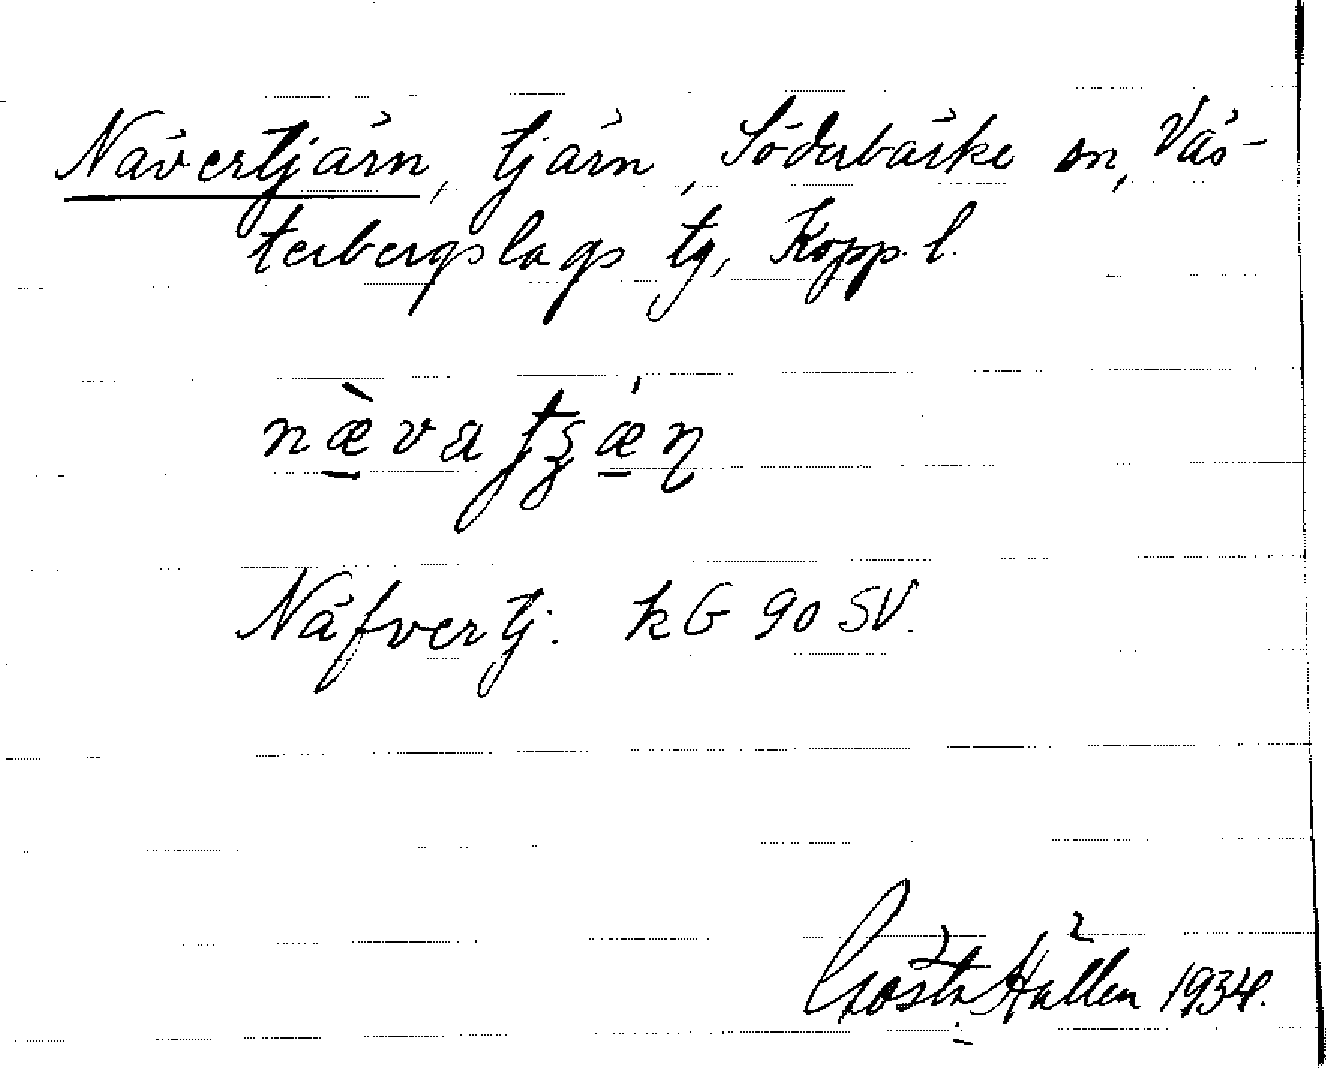 Nävertjärn, tjärn, Söderbärke sn, Väs-
terbergslags tg, Kopp. l.
Näfvertj. kG 90 SV.
Gösta Hallen 1934.